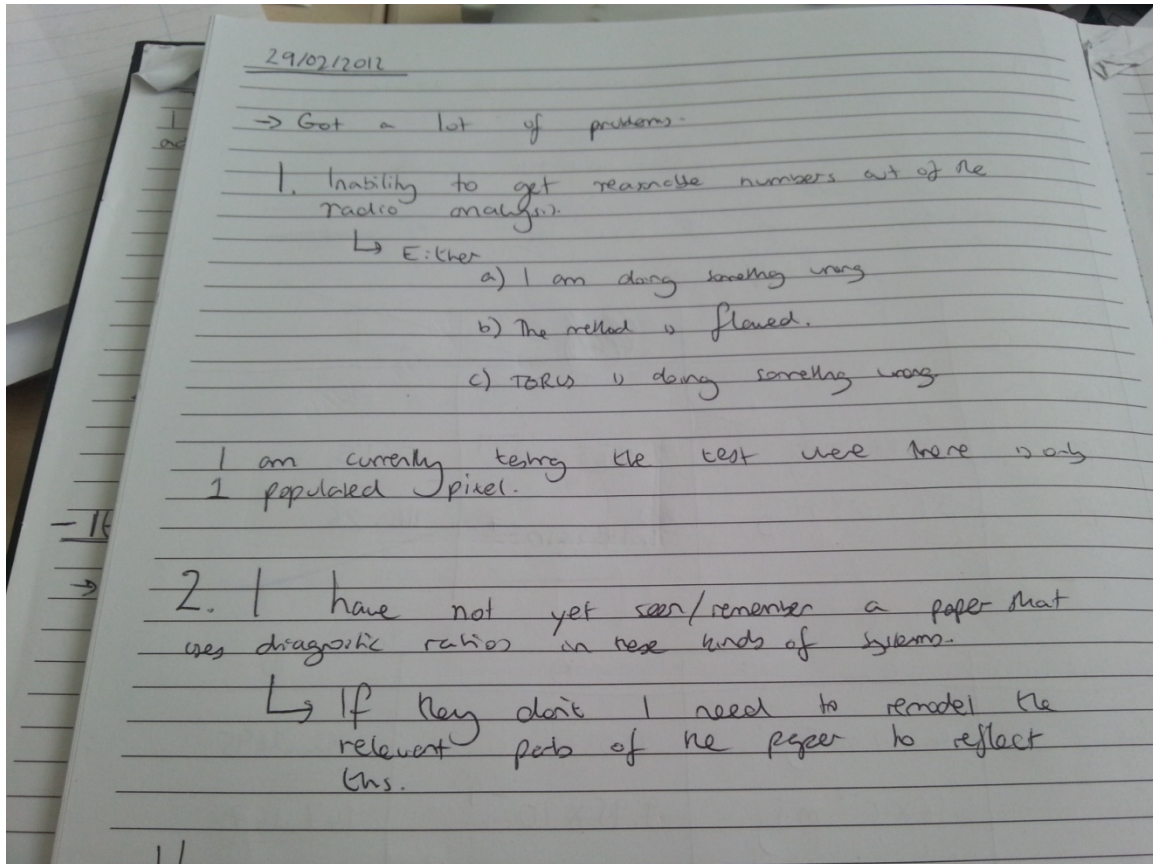 29/02/2012
→ Got a lot of problems.
1. Inability to get reasonable numbers out of the
radio analysis.
↳ Either
a) I am doing something wrong
b) The method is flawed.
c) TORUS is doing something wrong.
I am currently testing the test were there is only
1 populated pixel.
2. I have not yet seen/remember a paper that
uses diagnostic ratios in these kinds of systems.
↳ If they don't I need to remodel the
relevant parts of the paper to reflect
this.